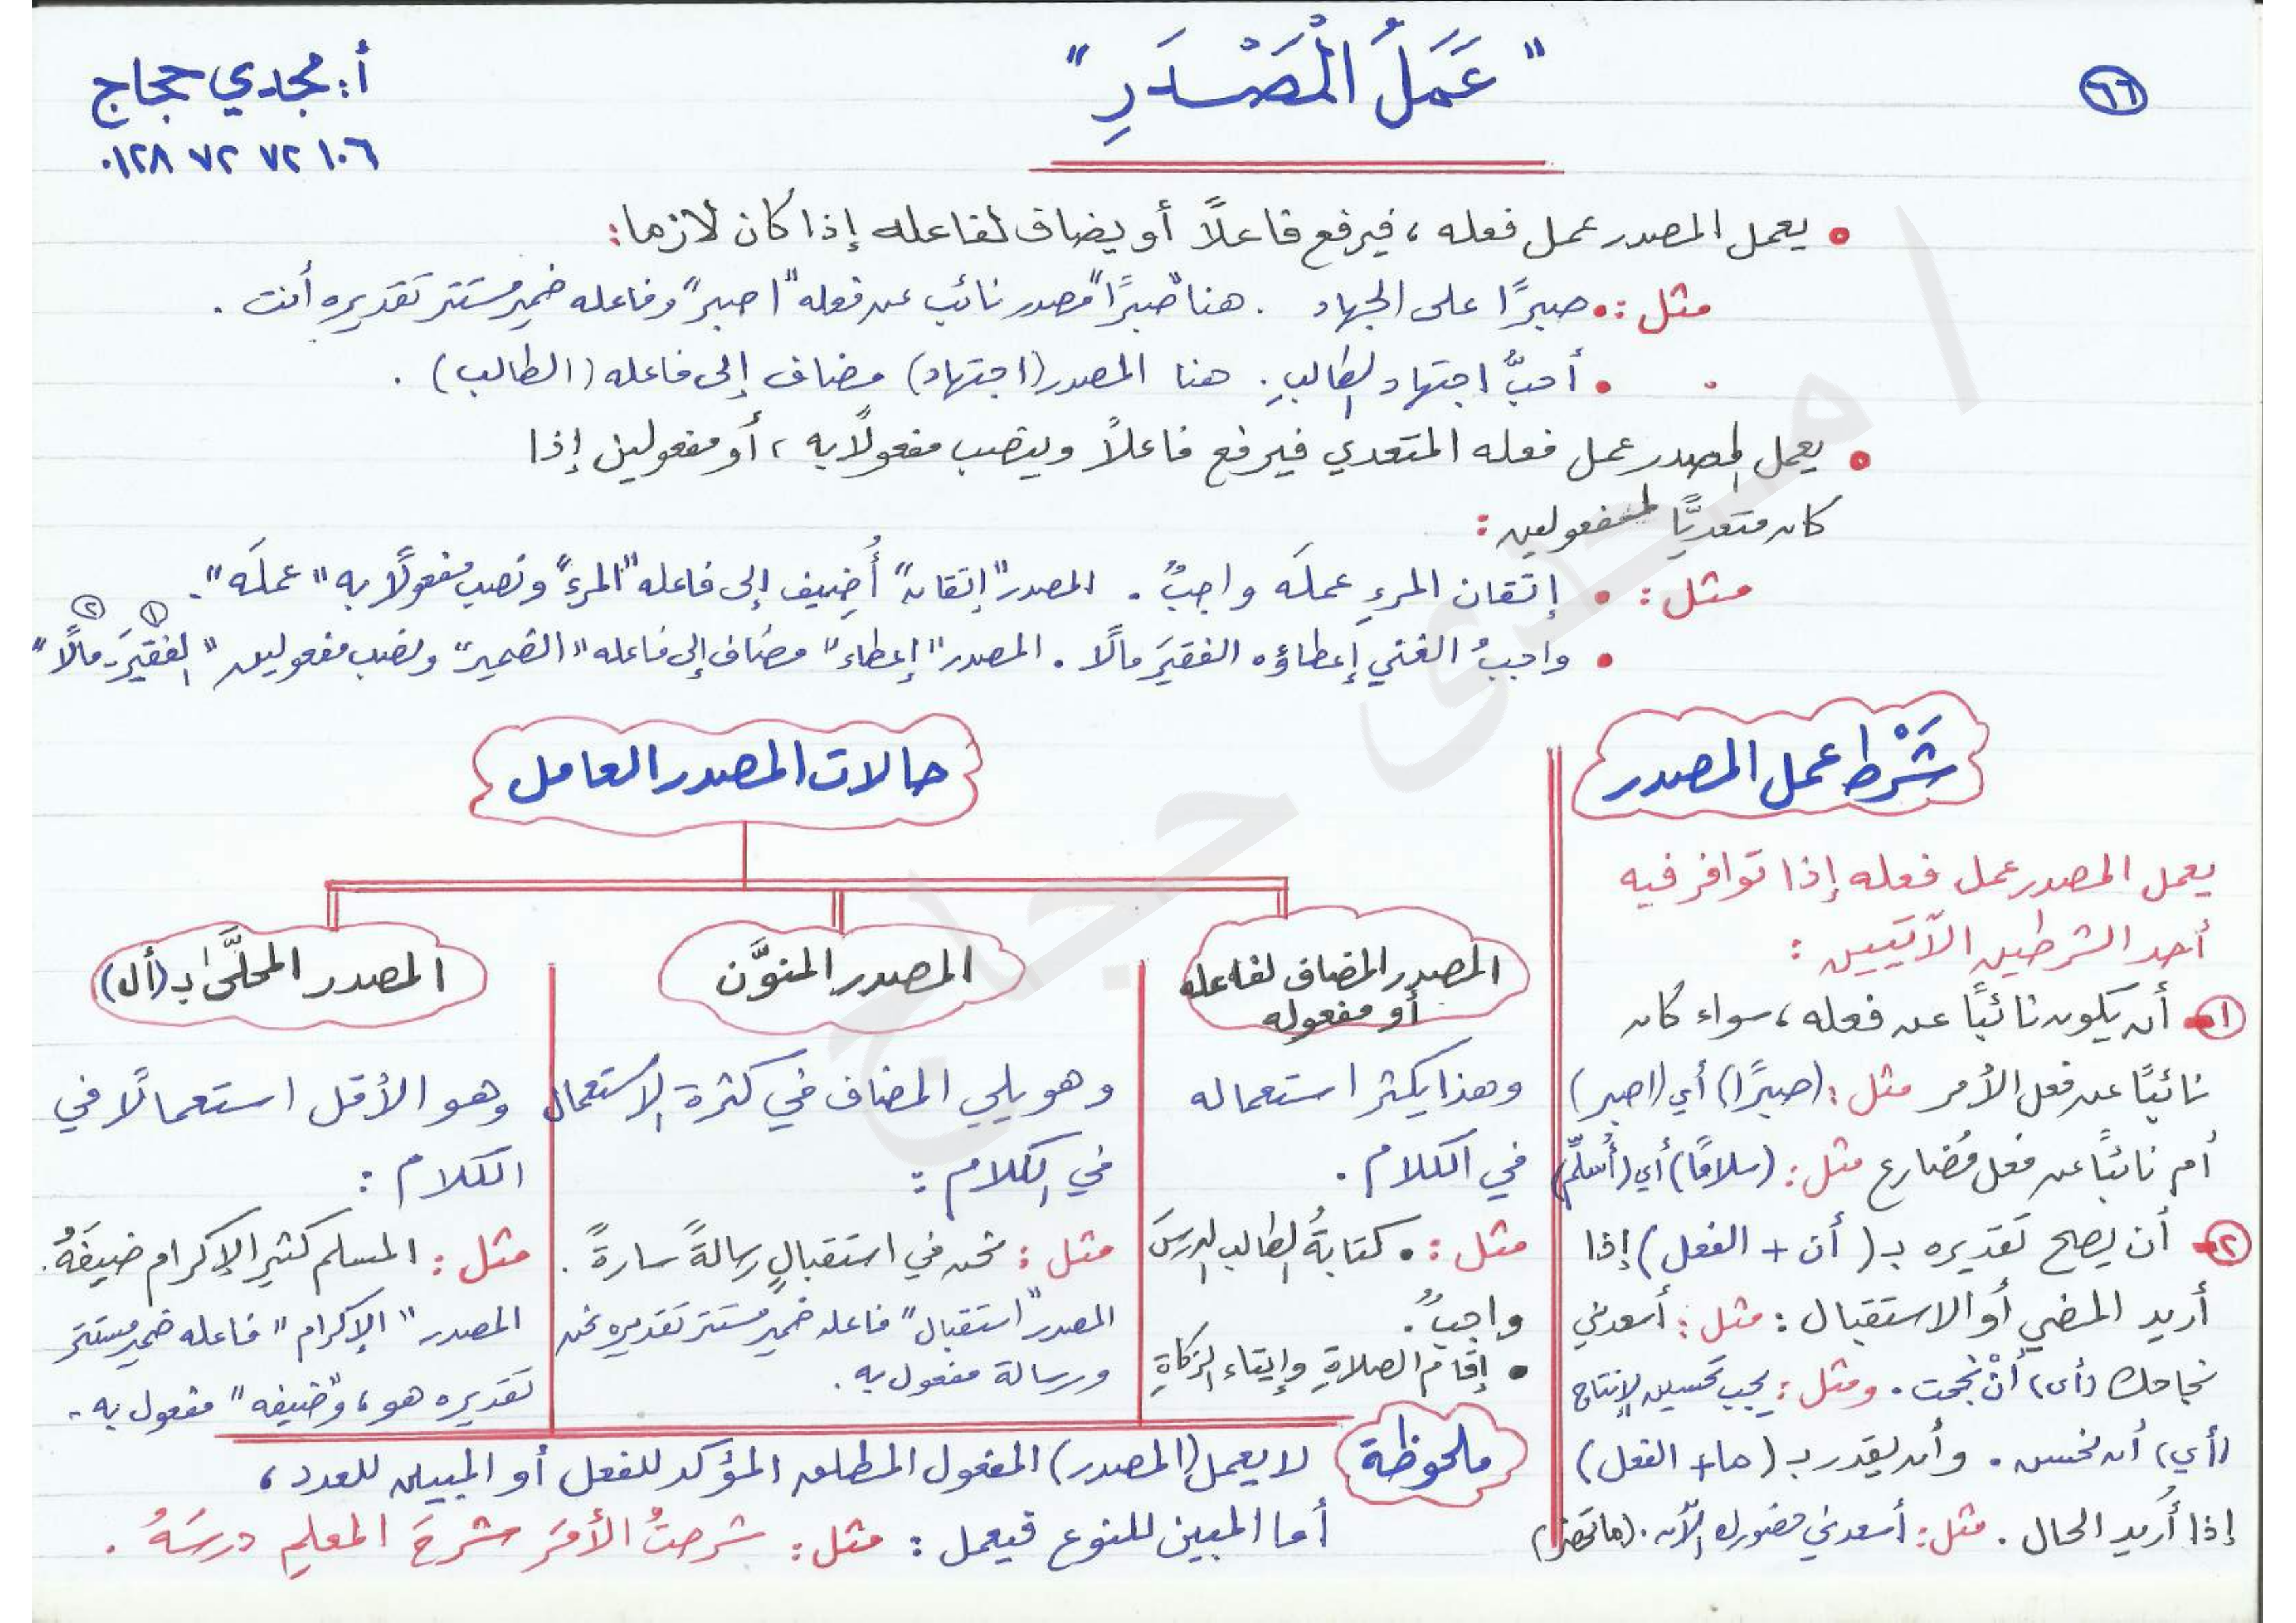 ٦٦
" عَمَلُ الْمَصْدَرِ "
أ: مجدي حجاج
٠١٢٨ ٧٢ ٧٢ ١٠٦
• يعمل المصدر عمل فعله ، فيرفع فاعلًا أو يضاف لفاعله إذا كان لازما :
مثل : • صبرًا على الجهاد . هنا "صبرًا" مصدر نائب عن فعله "اصبر" وفاعله ضمير مستتر تقديره أنت .
• أحبُّ اجتهاد الطالبِ . هنا المصدر (اجتهاد) مضاف إلى فاعله (الطالب) .
• يعمل المصدر عمل فعله المتعدي فيرفع فاعلًا وينصب مفعولًا به ، أو مفعولين إذا
كان متعديًّا لمفعولين :
مثل : • إتقان المرءِ عملَه واجبٌ . المصدر "إتقان" أُضِيف إلى فاعله "المرءِ" ونصب مفعولًا به "عملَه" .
١ ٢
• واجبُ الغني إعطاؤه الفقيرَ مالًا . المصدر "إعطاء" مضاف إلى فاعله "الضمير" ونصب مفعولين "الفقيرَ - مالًا"
شَرْط عمل المصدر
يعمل المصدر عمل فعله إذا توافر فيه
أحد الشرطين الآتيين :
١- أن يكون نائبًا عن فعله ، سواء كان
نائبًا عن فعل الأمر مثل : (صبرًا) أي (اصبر)
أم نائبًا عن فعل مُضارع مثل : (سلامًا) أي (أُسلِّم)
٢- أن يصح تقديره بـ ( أن + الفعل ) إذا
أريد المضي أو الاستقبال : مثل : أسعدني
نجاحك (أي) أنْ نجحت . ومثل : يجب تحسين الإنتاج
(أي) أن نحسن . وأن يقدر بـ ( ما + الفعل )
إذا أُريد الحال . مثل : أسعدني حضورك الآن . (ما تحضر)
حالات المصدر العامل
المصدر المضاف لفاعله
أو مفعوله
وهذا يكثر استعماله
في الكلام .
مثل : • كتابةُ الطالب الدرسَ
واجبٌ .
• إقام الصلاةِ وإيتاء الزكاةِ
المصدر المنوَّن
وهو يلي المضاف في كثرة الاستعمال
في الكلام :
مثل : نحن في استقبالٍ رسالةً سارةً .
المصدر "استقبال" فاعله ضمير مستتر تقديره نحن
ورسالة مفعول به .
المصدر المحلَّى بـ (أل)
وهو الأقل استعمالًا في
الكلام :
مثل : المسلم كثير الإكرام ضيفَهُ .
المصدر "الإكرام" فاعله ضمير مستتر
تقديره هو ، و"ضيفه" مفعول به .
ملحوظة
لا يعمل (المصدر) المفعول المطلق المؤكد للفعل أو المبين للعدد ،
أما المبين للنوع فيعمل : مثل : شرحتُ الأمرَ شرحَ المعلمِ درسَهُ .
أ / مجدى حجاج